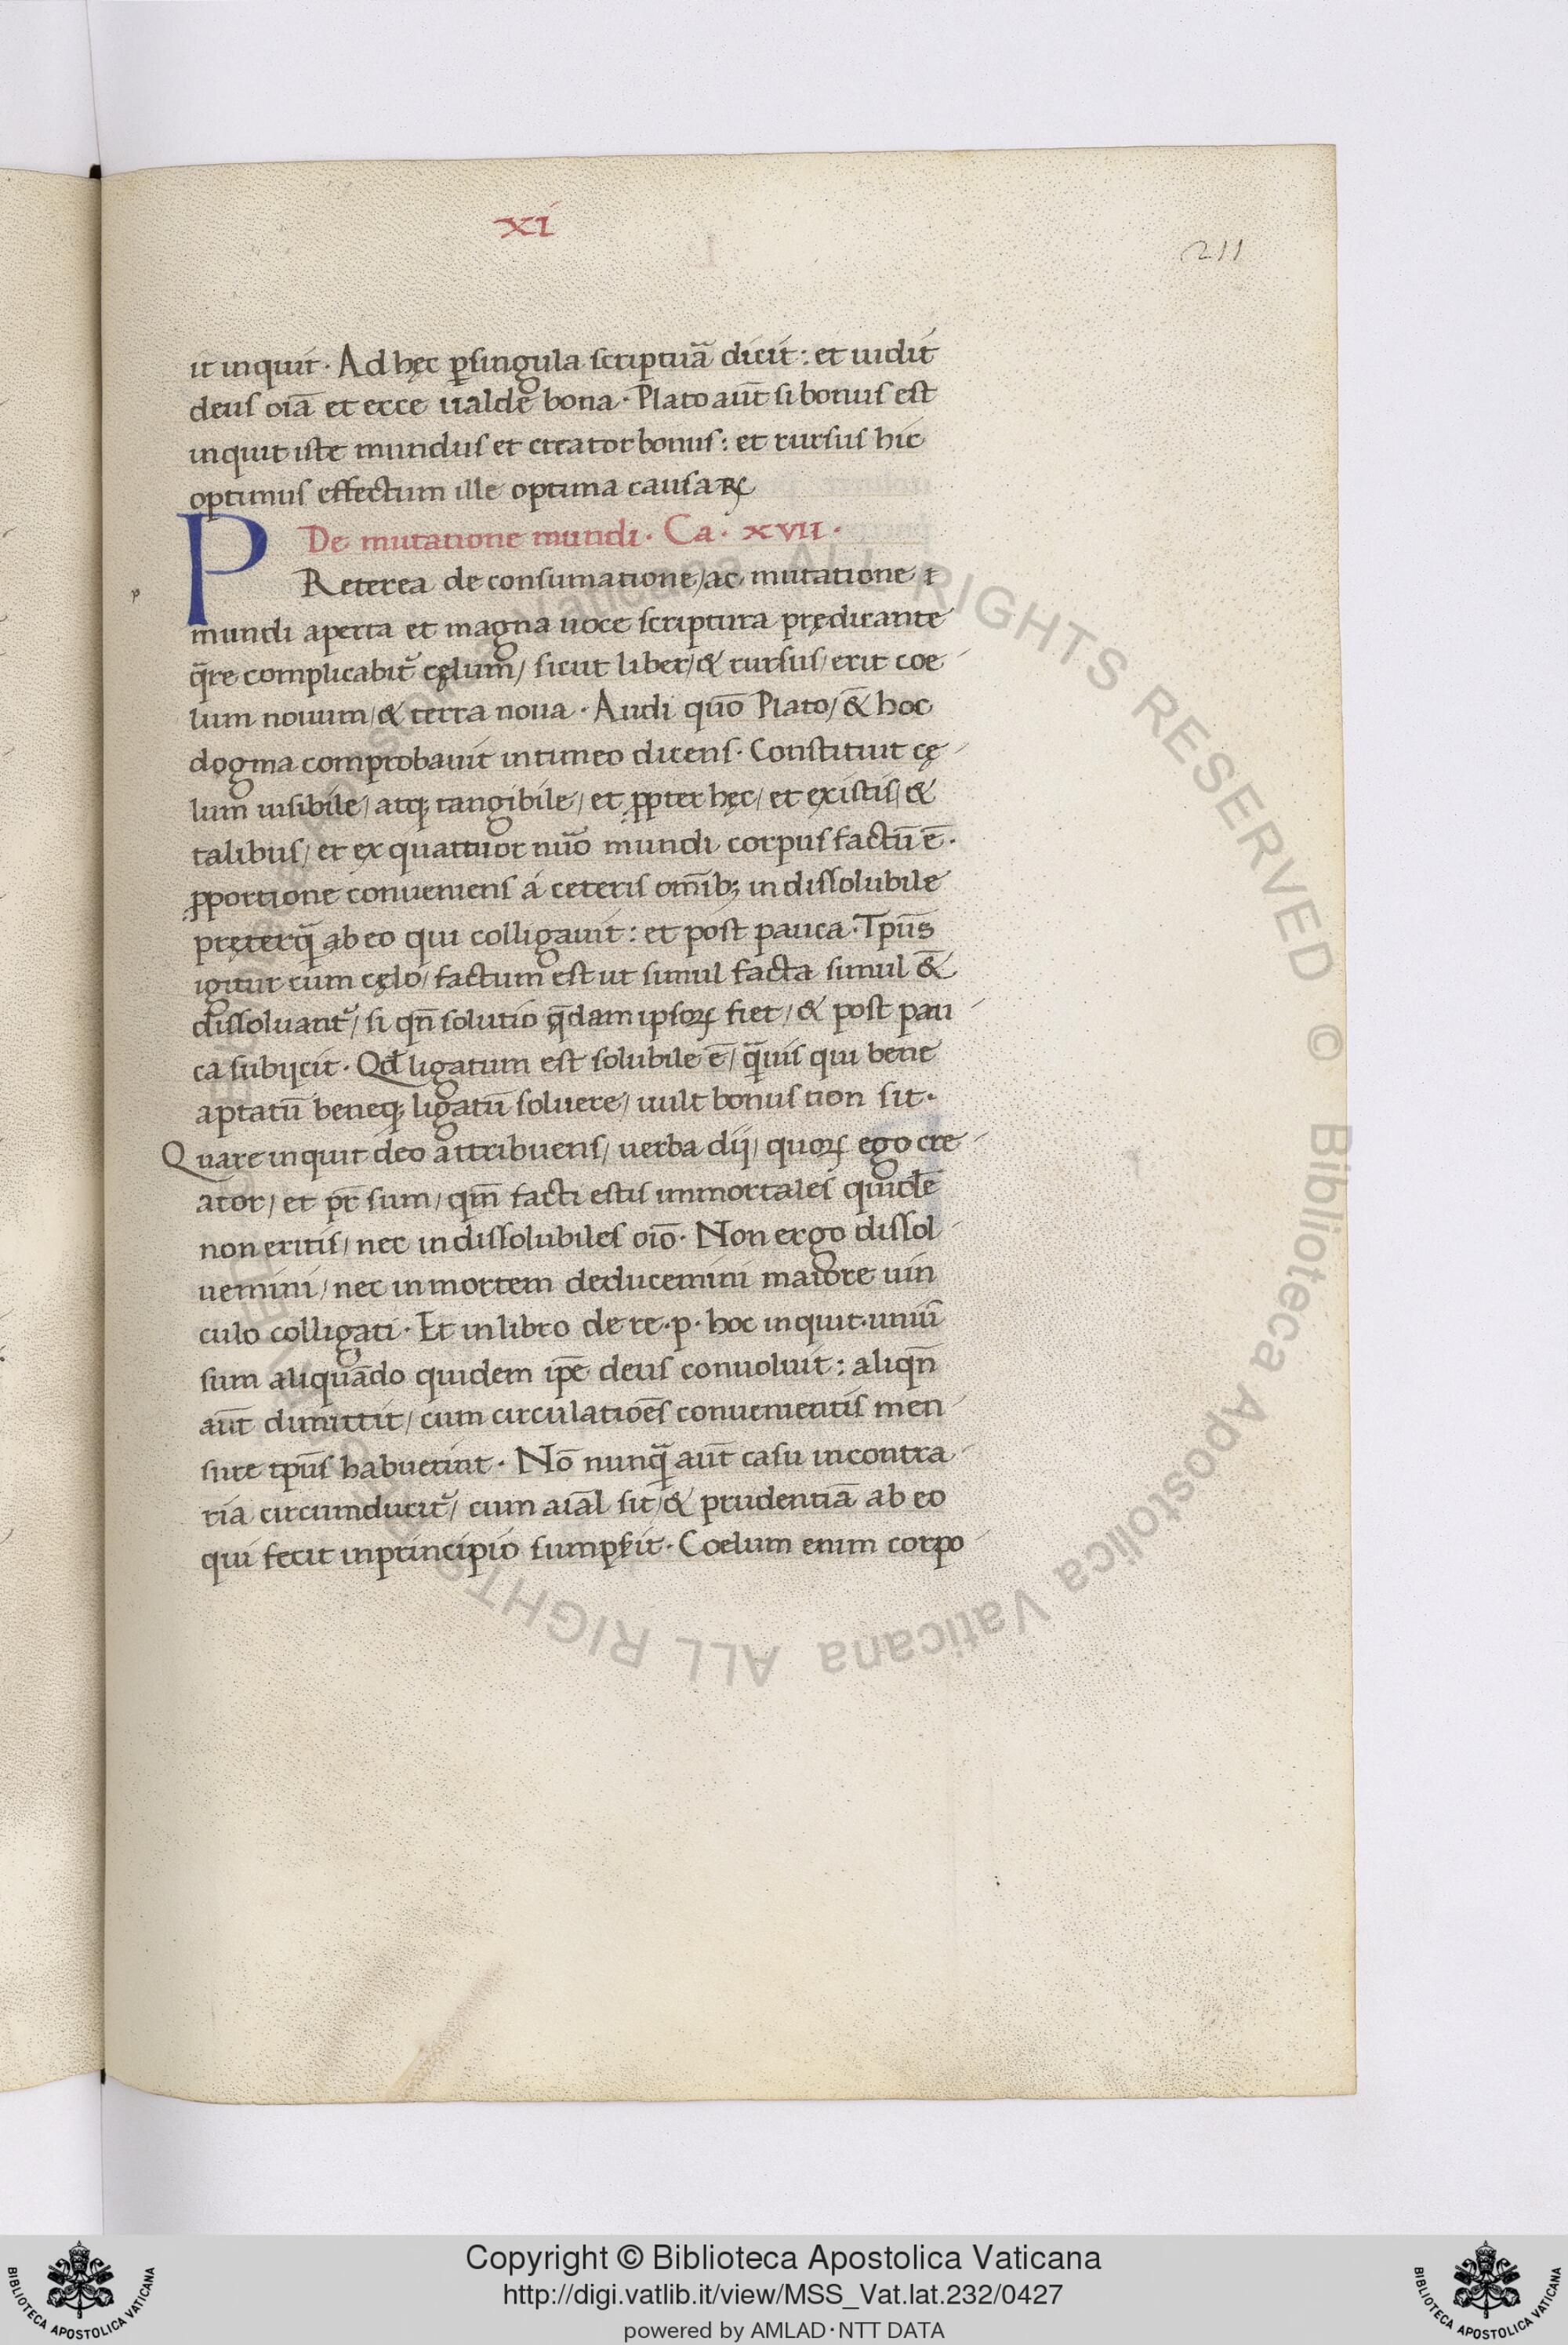 xi
211
it inquit. Ad hęc ꝑ singula scripturaᷓ dicit: et uidit
deus oīa et ecce ualde bona. Plato aūt si bonus est
inquit iste mundus et creator bonus: et rursus hic
optimus effectum ille optima causarꝝ
De mutatione mundi. Ca. xvii.
p
PReterea de consumatione/ac mutatione
mundi aperta et magna uoce scriptura prędicante
q̄re complicabit᷑ cęlum/ sicut liber/& rursus/erit coe
lum nouum/& terra noua. Audi quō Plato/& hoc
dogma comprobauit in timeo dicens. Constituit cę
lum uisibile/atq; tangibile/et ꝓpter hęc/et ex istis/&
talibus/et ex quattuor nūo mundi corpus factū ē.
ꝓportione conueniens á ceteris om̄ib; indissolubile
pręterq̄ ab eo qui colligauit: et post pauca. Tpūs
igitur cum cęlo/factum est ut simul facta simul &
dissoluant᷑/si qn̄ solutio q̄dam ipsoꝝ fiet/& post pau
ca subijcit. Qd̄ ligatum est solubile ē/q̄uis qui bene
aptatū beneq; ligatū soluere/uult bonus non sit.
Quare inquit deo attribuens/uerba dij/quoꝝ ego cre
ator/et pr̄ sum/qm̄ facti estis immortales quidē
non eritis/nec indissolubiles oīo. Non ergo dissol
uemini/nec in mortem deducemini maiore uin
culo colligati. Et in libro de re.p. hoc inquit.uniū
sum aliquādo quidem ip̄e deus conuoluit: aliqn̄
aūt dimittit/cum circulatiōes conuenientis men
sure tpūs habuerint. Nō nunq̄ aūt casu in contra
ria circumducit᷑/cum aīal sit/& prudentiā ab eo
qui fecit in principio sumpsit. Coelum enim corpo
© Biblioteca Apostolica Vaticana ALL RIGHTS RESERVED
Copyright © Biblioteca Apostolica Vaticana
http://digi.vatlib.it/view/MSS_Vat.lat.232/0427
powered by AMLAD·NTT DATA
BIBLIOTECA APOSTOLICA VATICANA
BIBLIOTECA APOSTOLICA VATICANA